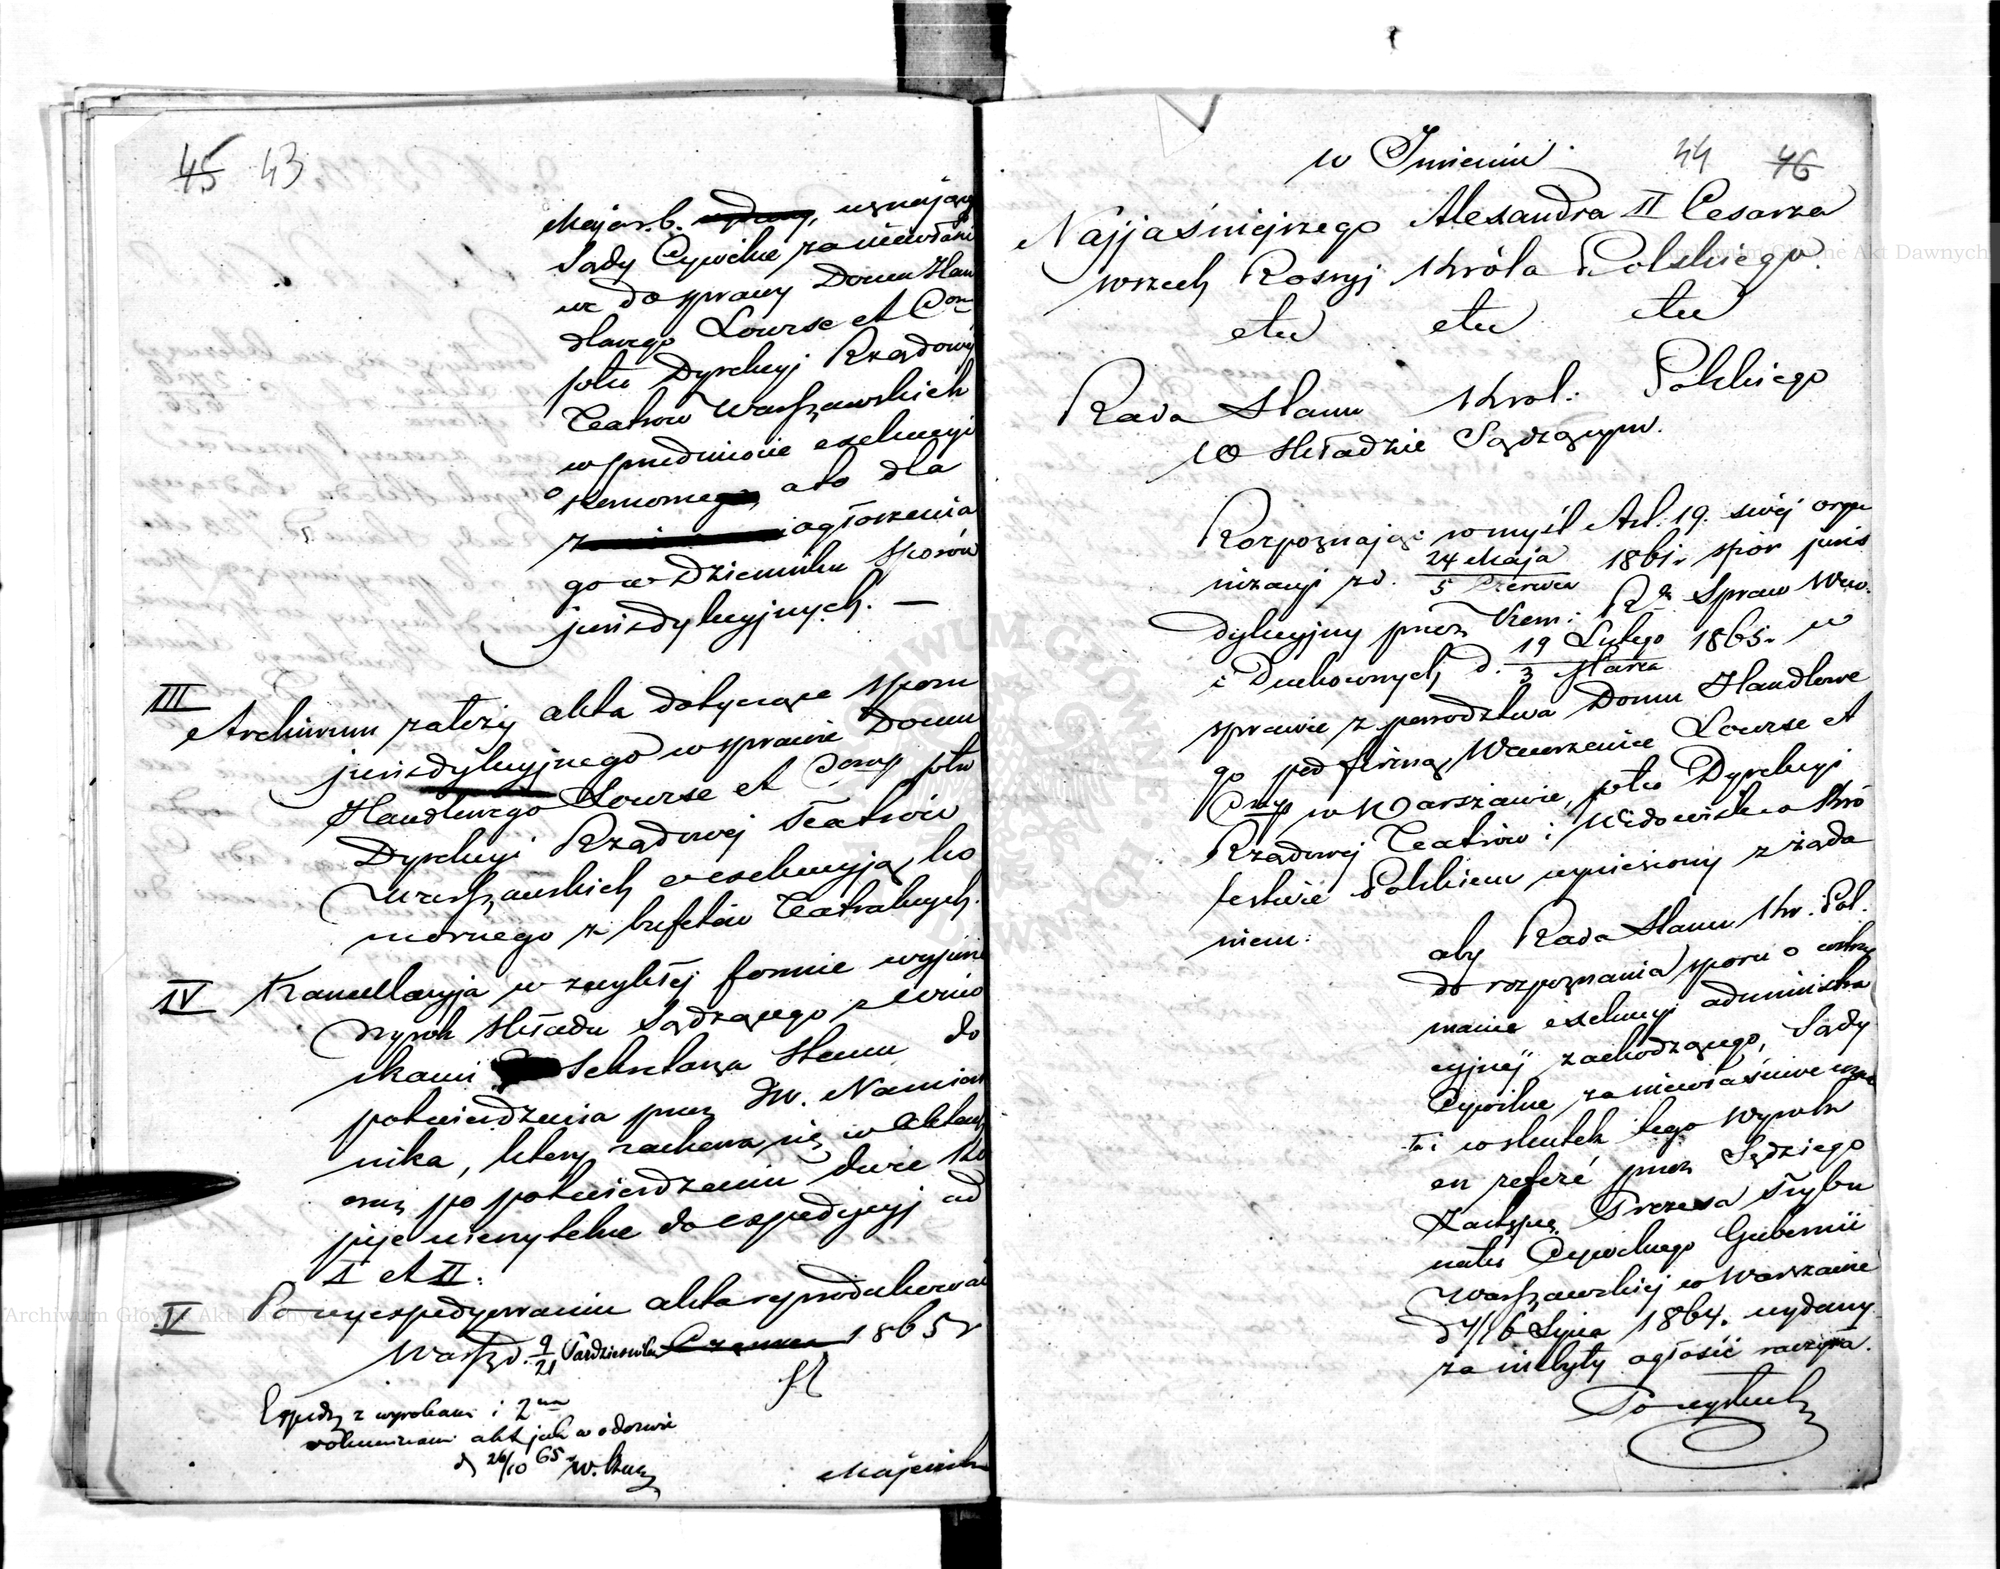 45 43
Maja r. b. uznający
Sądy Cywilne za niewłaści
we do sprawy Domu Han
dlowego Lourse et Com
pko Dyrekcyi Rządowej
Teatrów Warszawskich
w przedmiocie exekucyi
komornego, a to dla
ogłoszenia
go w Dzienniku sporów
jurisdykcyjnych. —
III
Archiwum załozy akta dotyczące sporu
jurisdykcyjnego w sprawie Domu
Handlowego Lourse et Comp pko
Dyrekcyi Rządowej Teatrów
Warszawskich o exekucyją ko
mornego z bufetów Teatralnych.
IV Kancellaryja w zwykłej formie wyjmie
Wyrok Składu Sądzącego z wnio
skami Sekretarza Stanu do
potwierdzenia przez JW. Namiest
nika, który zachowa się w Aktach
oraz po potwierdzeniu dwie ko
pije wierzytelne do expedycyj ad
I et II.
V Po wyexpedyowaniu akta reprodukować
Warsz d. 9/21 Października 1865 r
Exped z wyrokami i 2ma
voluminami akt jak w odezwie
d 26/10 65
44 46
w Imieniu
Najjaśniejszego Alexandra II Cesarza
wszech Rossyj Króla Polskiego
etc etc etc
Rada Stanu Król. Polskiego
w Składzie Sądzącym.
Rozpoznając w myśl Art. 19. swéj orga
nizacyi z d. 24 Maja / 5 Czerwca 1861 r spór juris
dykcyjny przez Kom: Rz. Spraw Wew.
i Duchownych d. 19 Lutego / 3 Marca 1865 r w
sprawie z powództwa Domu Handlowe
go pod firmą Wawrzeniec Lourse et
Comp w Warszawie, pko Dyrekcyi
Rządowej Teatrów i Widowisk w Kró
lestwie Polskiem wyniesiony z żąda
niem:
aby Rada Stanu Kr. Pol.
do rozpoznania sporu o wstrzy
manie exekucyi administra
cyjnéj zachodzącego, Sądy
Cywilne za niewłaściwe uzna
ła i w skutek tego Wyrok
en referé przez Sędziego
Zastępcę Prezesa Trybu
nału Cywilnego Gubernii
Warszawskiej w Warszawie
d 4/16 Lipca 1864. wydany
za niebyły ogłosić raczyła.